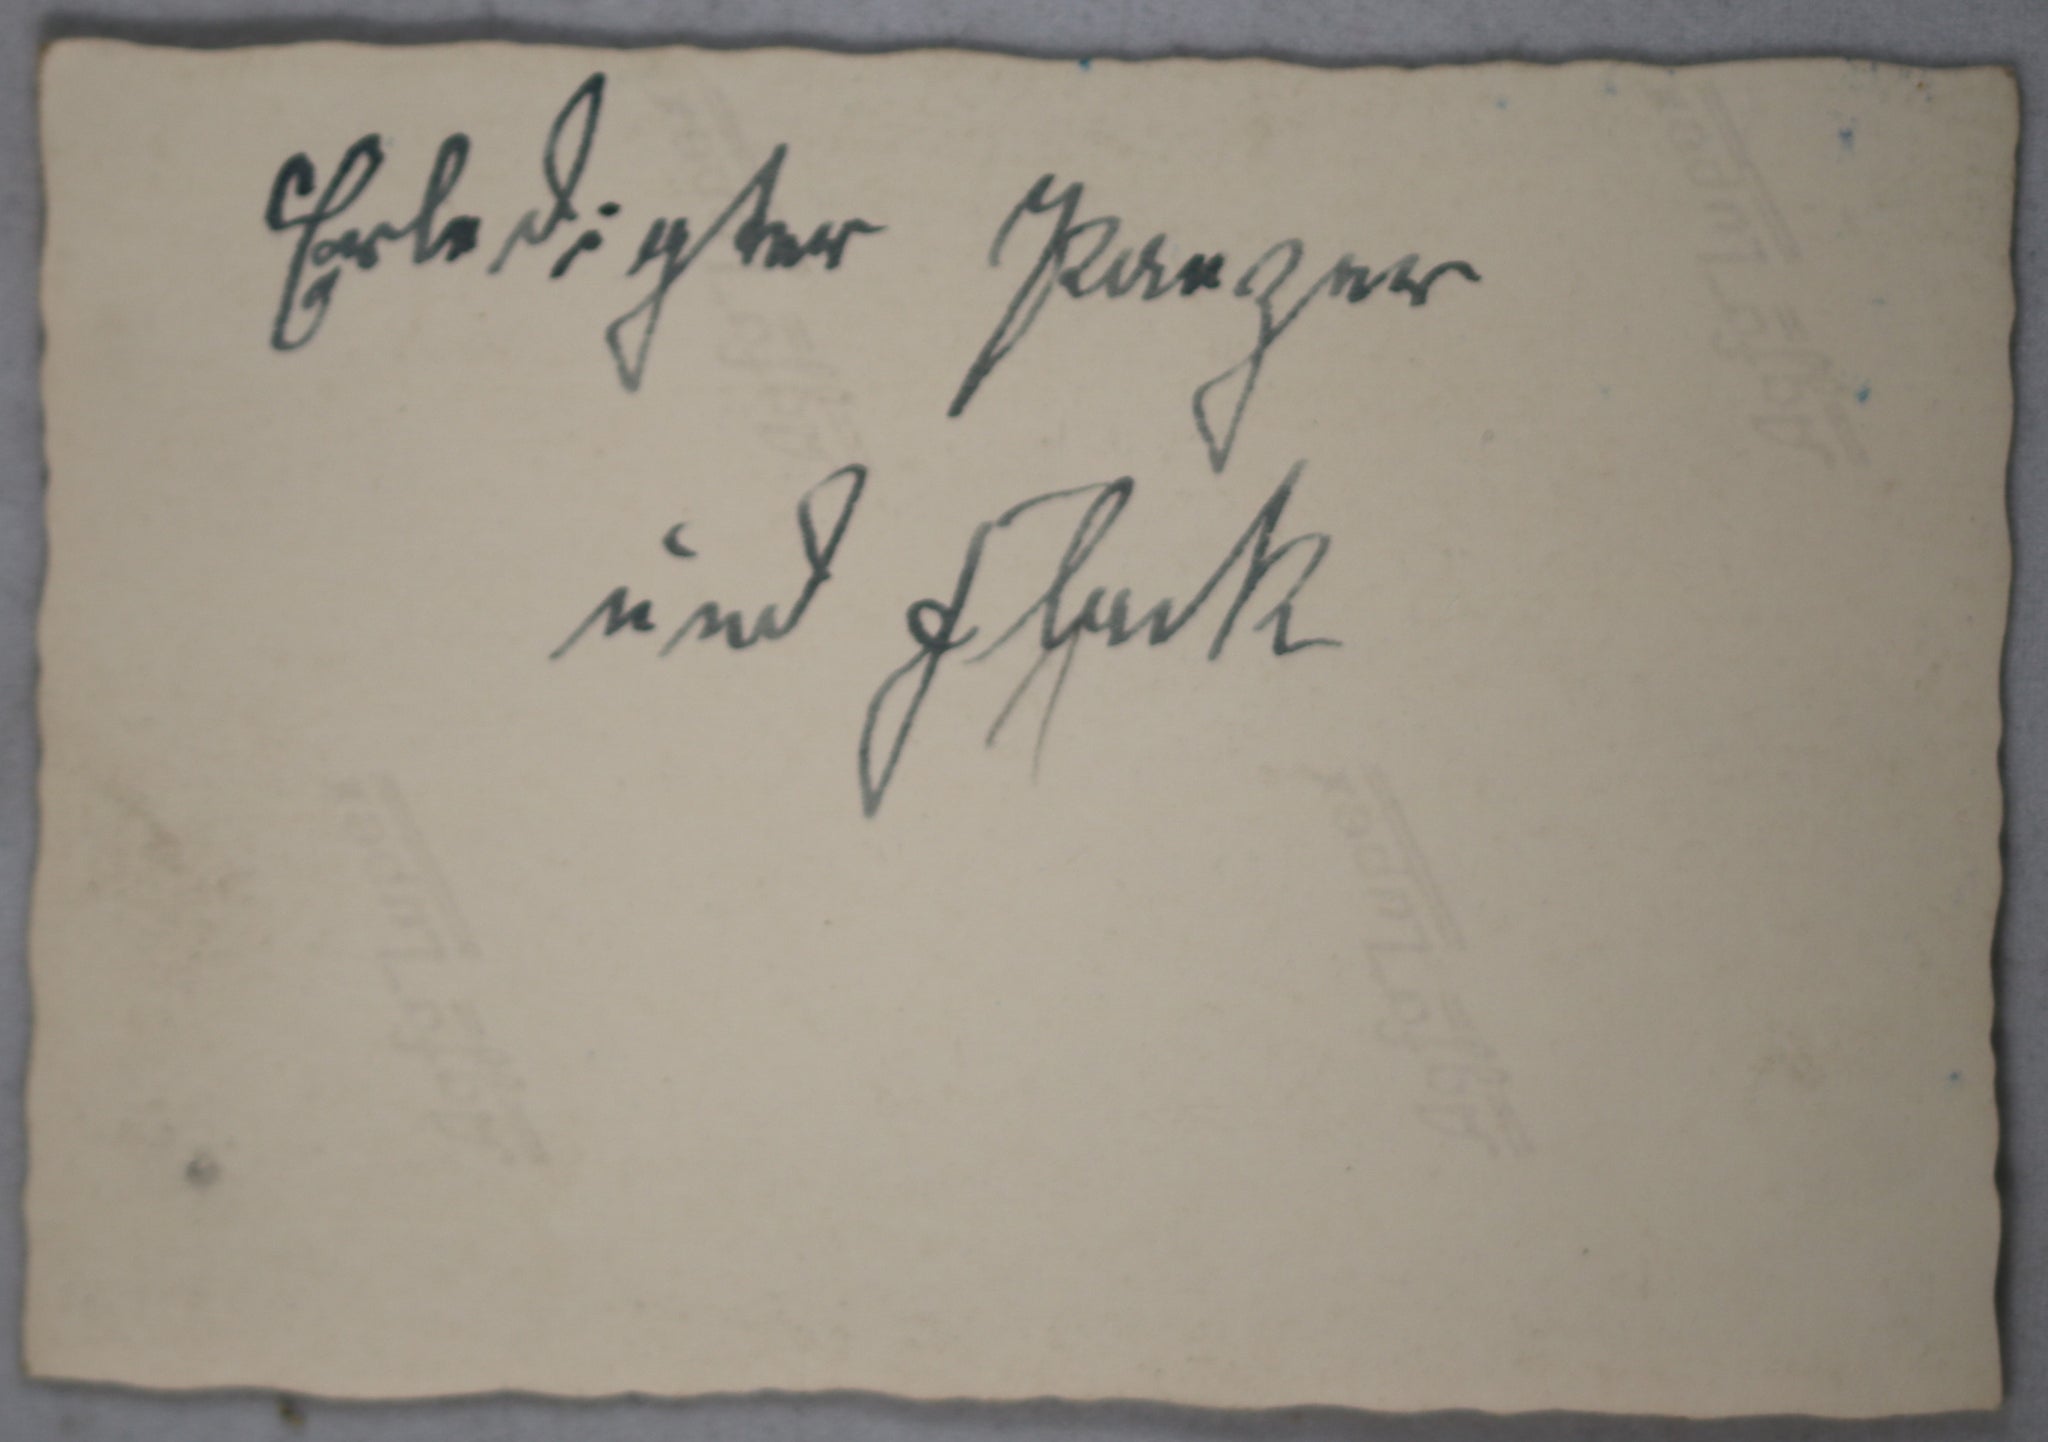 Erledigter Panzer
und Flack